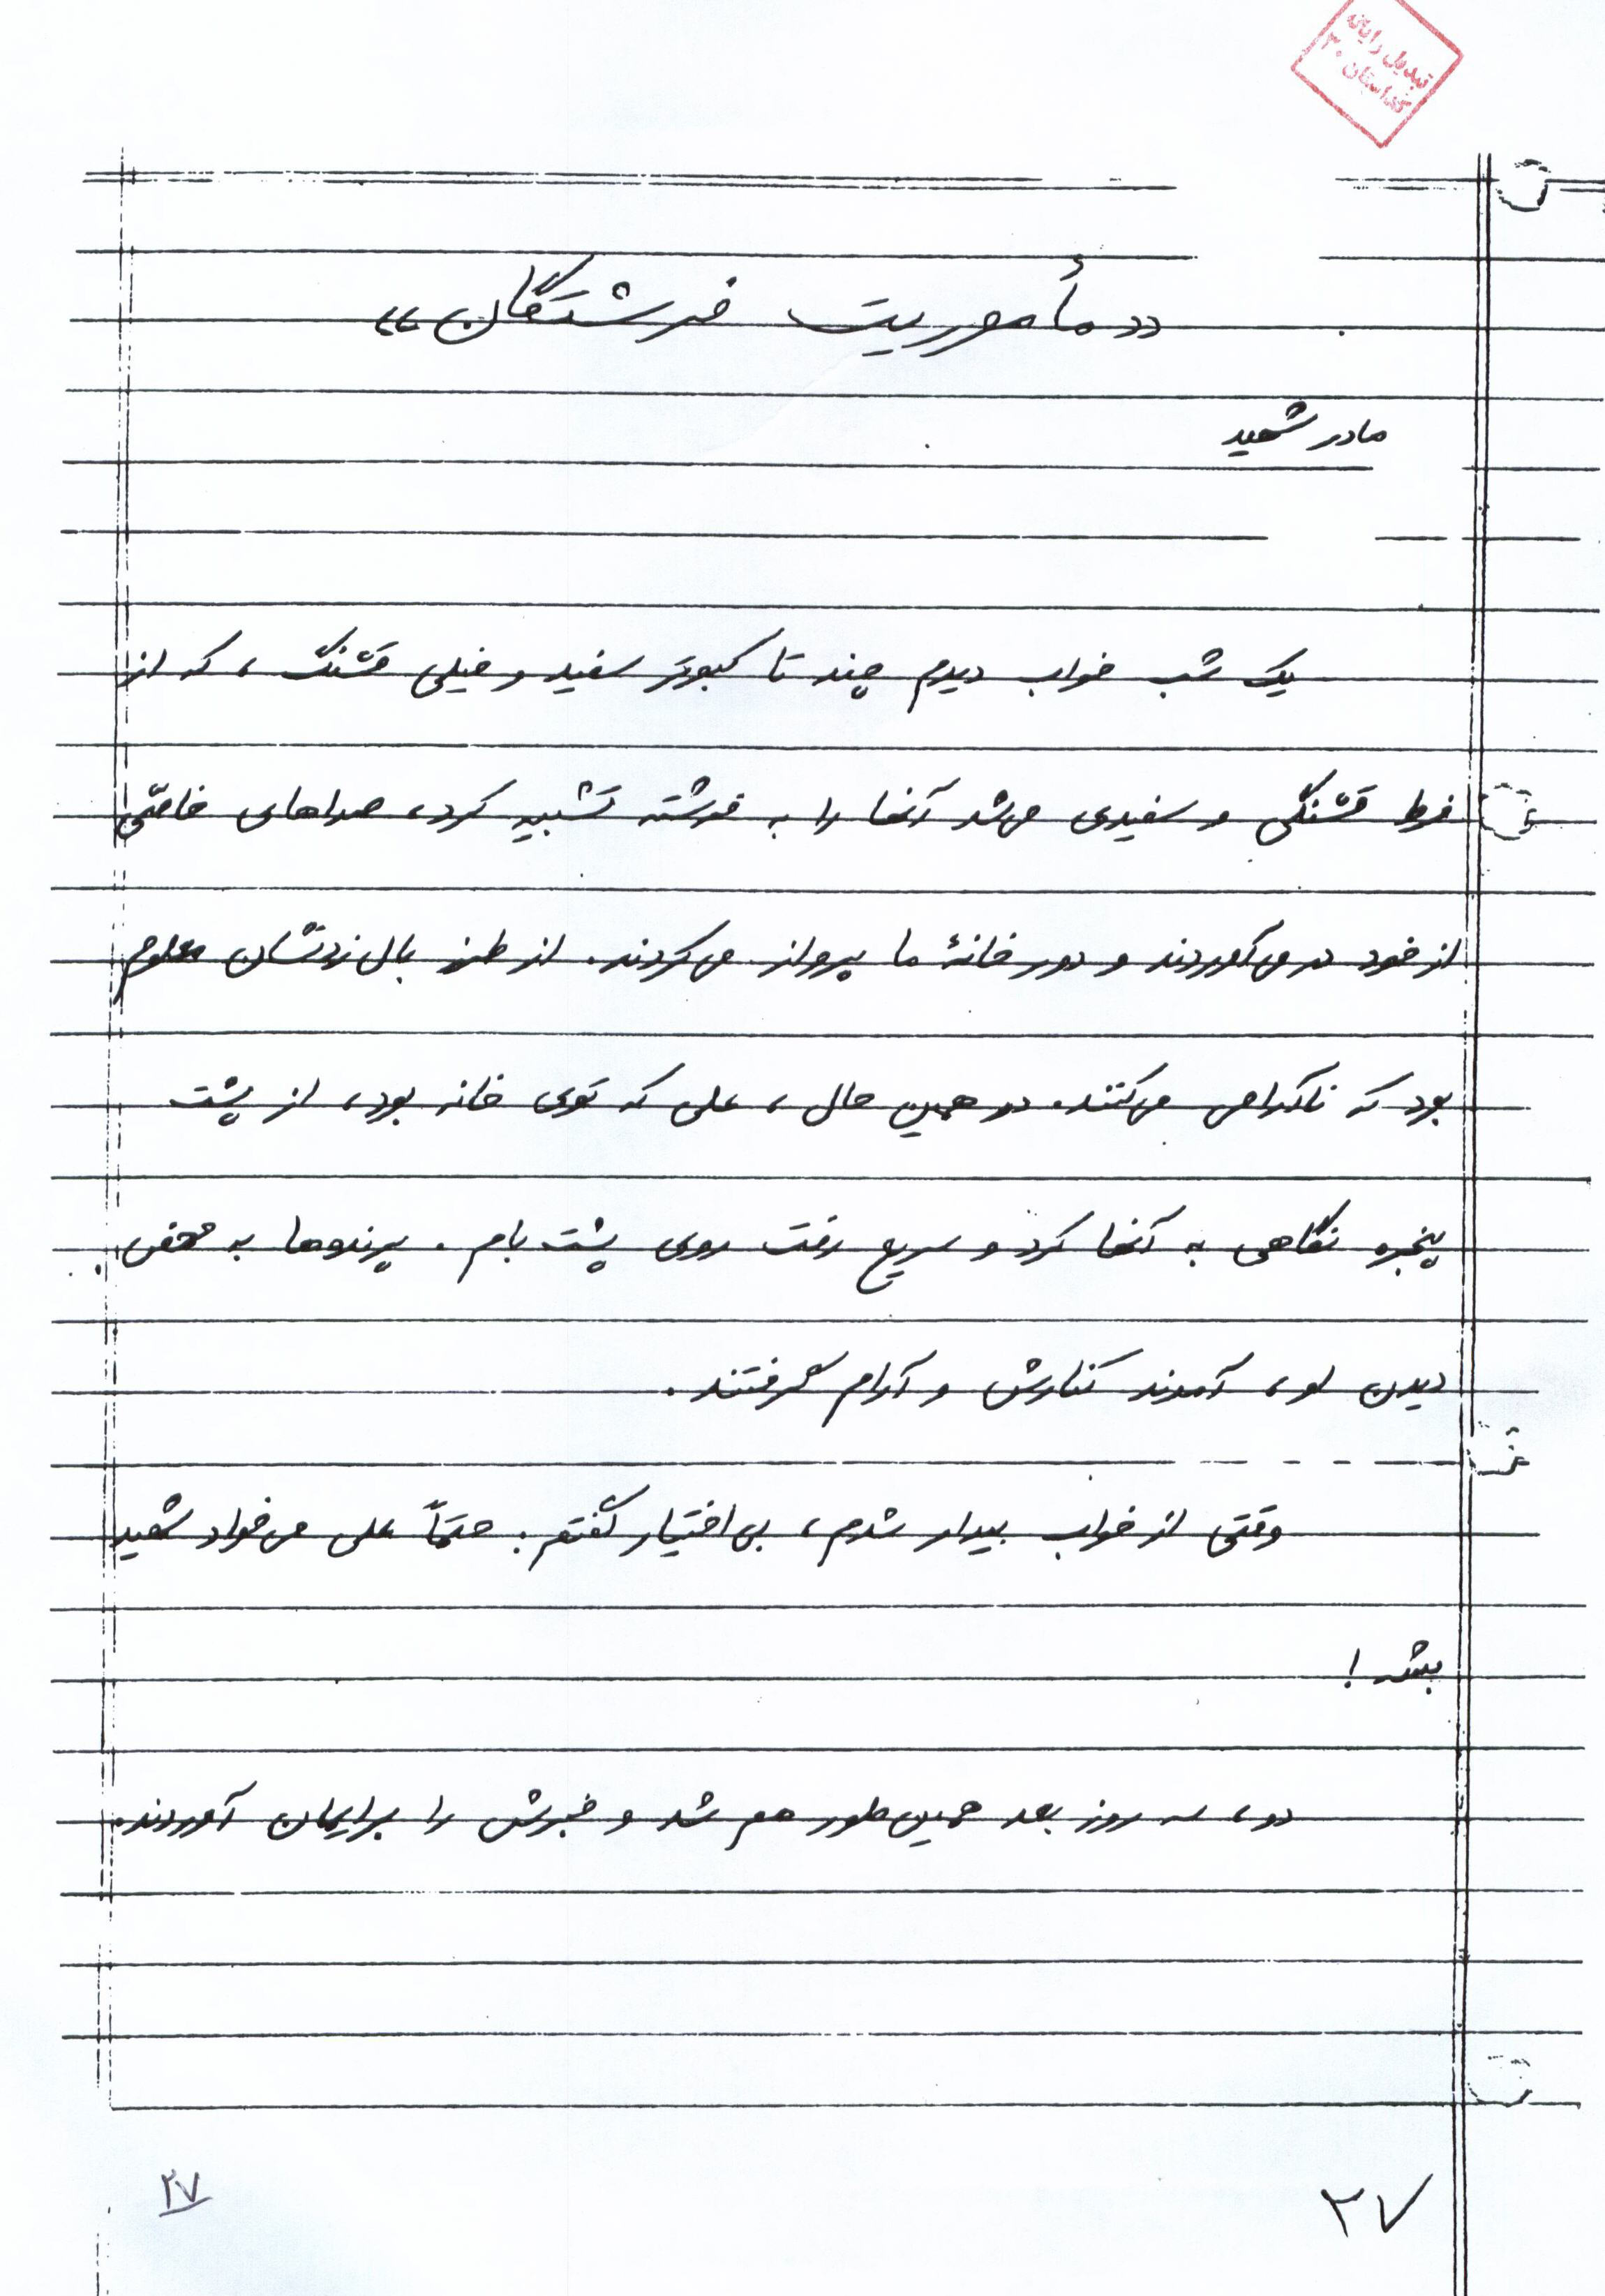 «مأموریت فرشتگان»
مادر شهید
یک شب خواب دیدم چند تا کبوتر سفید و خیلی قشنگ، که از
فرط قشنگی و سفیدی می‌شد آنها را به فرشته تشبیه کرد، صداهای خاصّی
از خود در می‌آوردند و دور خانهٔ ما پرواز می‌کردند. از طرز بال زدنشان معلوم
بود که ناآرامی می‌کنند. در همین حال، علی که توی خانه بود، از پشت
پنجره نگاهی به آنها کرد و سریع رفت روی پشت بام. پرنده‌ها به محض
دیدن او، آمدند کنارش و آرام گرفتند.
وقتی از خواب بیدار شدم، بی‌اختیار گفتم: حتماً علی می‌خواد شهید
بشه!
دو، سه روز بعد همین‌طور هم شد و خبرش را برایمان آوردند.
۲۷
۲۷